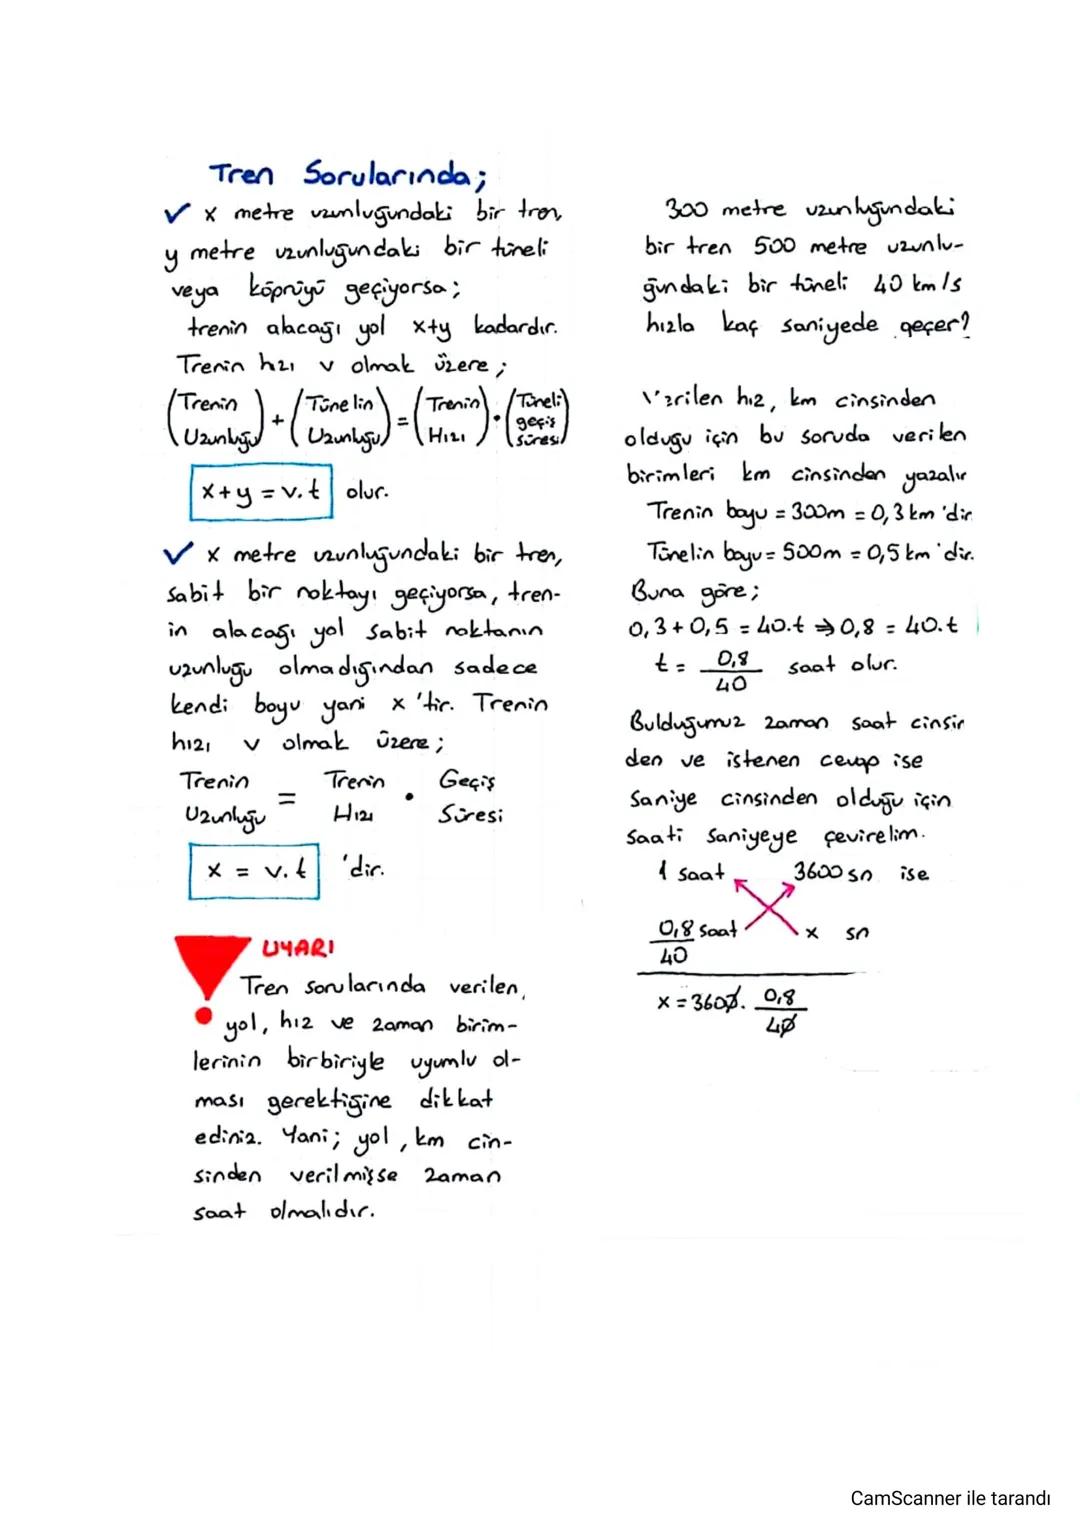 Tren Sorularında;
✓ x metre uzunluğundaki bir tren,
y metre uzunluğundaki bir tüneli
veya köprüyü geçiyorsa;
trenin alacağı yol x+y kadardır.
Trenin hızı v olmak üzere;
(Trenin Uzunluğu) + (Tünelin Uzunluğu) = (Trenin Hızı) . (Tüneli geçiş süresi)
x+y = v.t olur.
✓ x metre uzunluğundaki bir tren,
sabit bir noktayı geçiyorsa, tren-
in alacağı yol sabit noktanın
uzunluğu olmadığından sadece
kendi boyu yani x 'tir. Trenin
hızı v olmak üzere;
Trenin Uzunluğu = Trenin Hızı . Geçiş Süresi
x = v.t 'dir.
UYARI
Tren sorularında verilen,
yol, hız ve zaman birim-
lerinin birbiriyle uyumlu ol-
ması gerektiğine dikkat
ediniz. Yani; yol, km cin-
sinden verilmişse zaman
saat olmalıdır.
300 metre uzunluğundaki
bir tren 500 metre uzunlu-
ğundaki bir tüneli 40 km/s
hızla kaç saniyede geçer?
Verilen hız, km cinsinden
olduğu için bu soruda verilen
birimleri km cinsinden yazalır
Trenin boyu = 300m = 0,3 km 'dir
Tünelin boyu = 500m = 0,5 km 'dir.
Buna göre;
0,3 + 0,5 = 40.t ⇒ 0,8 = 40.t
t = 0,8/40 saat olur.
Bulduğumuz zaman saat cinsin
den ve istenen cevap ise
saniye cinsinden olduğu için
saati saniyeye çevirelim.
1 saat 3600 sn ise
0,8/40 saat x sn
x = 3600 . 0,8/40
CamScanner ile tarandı